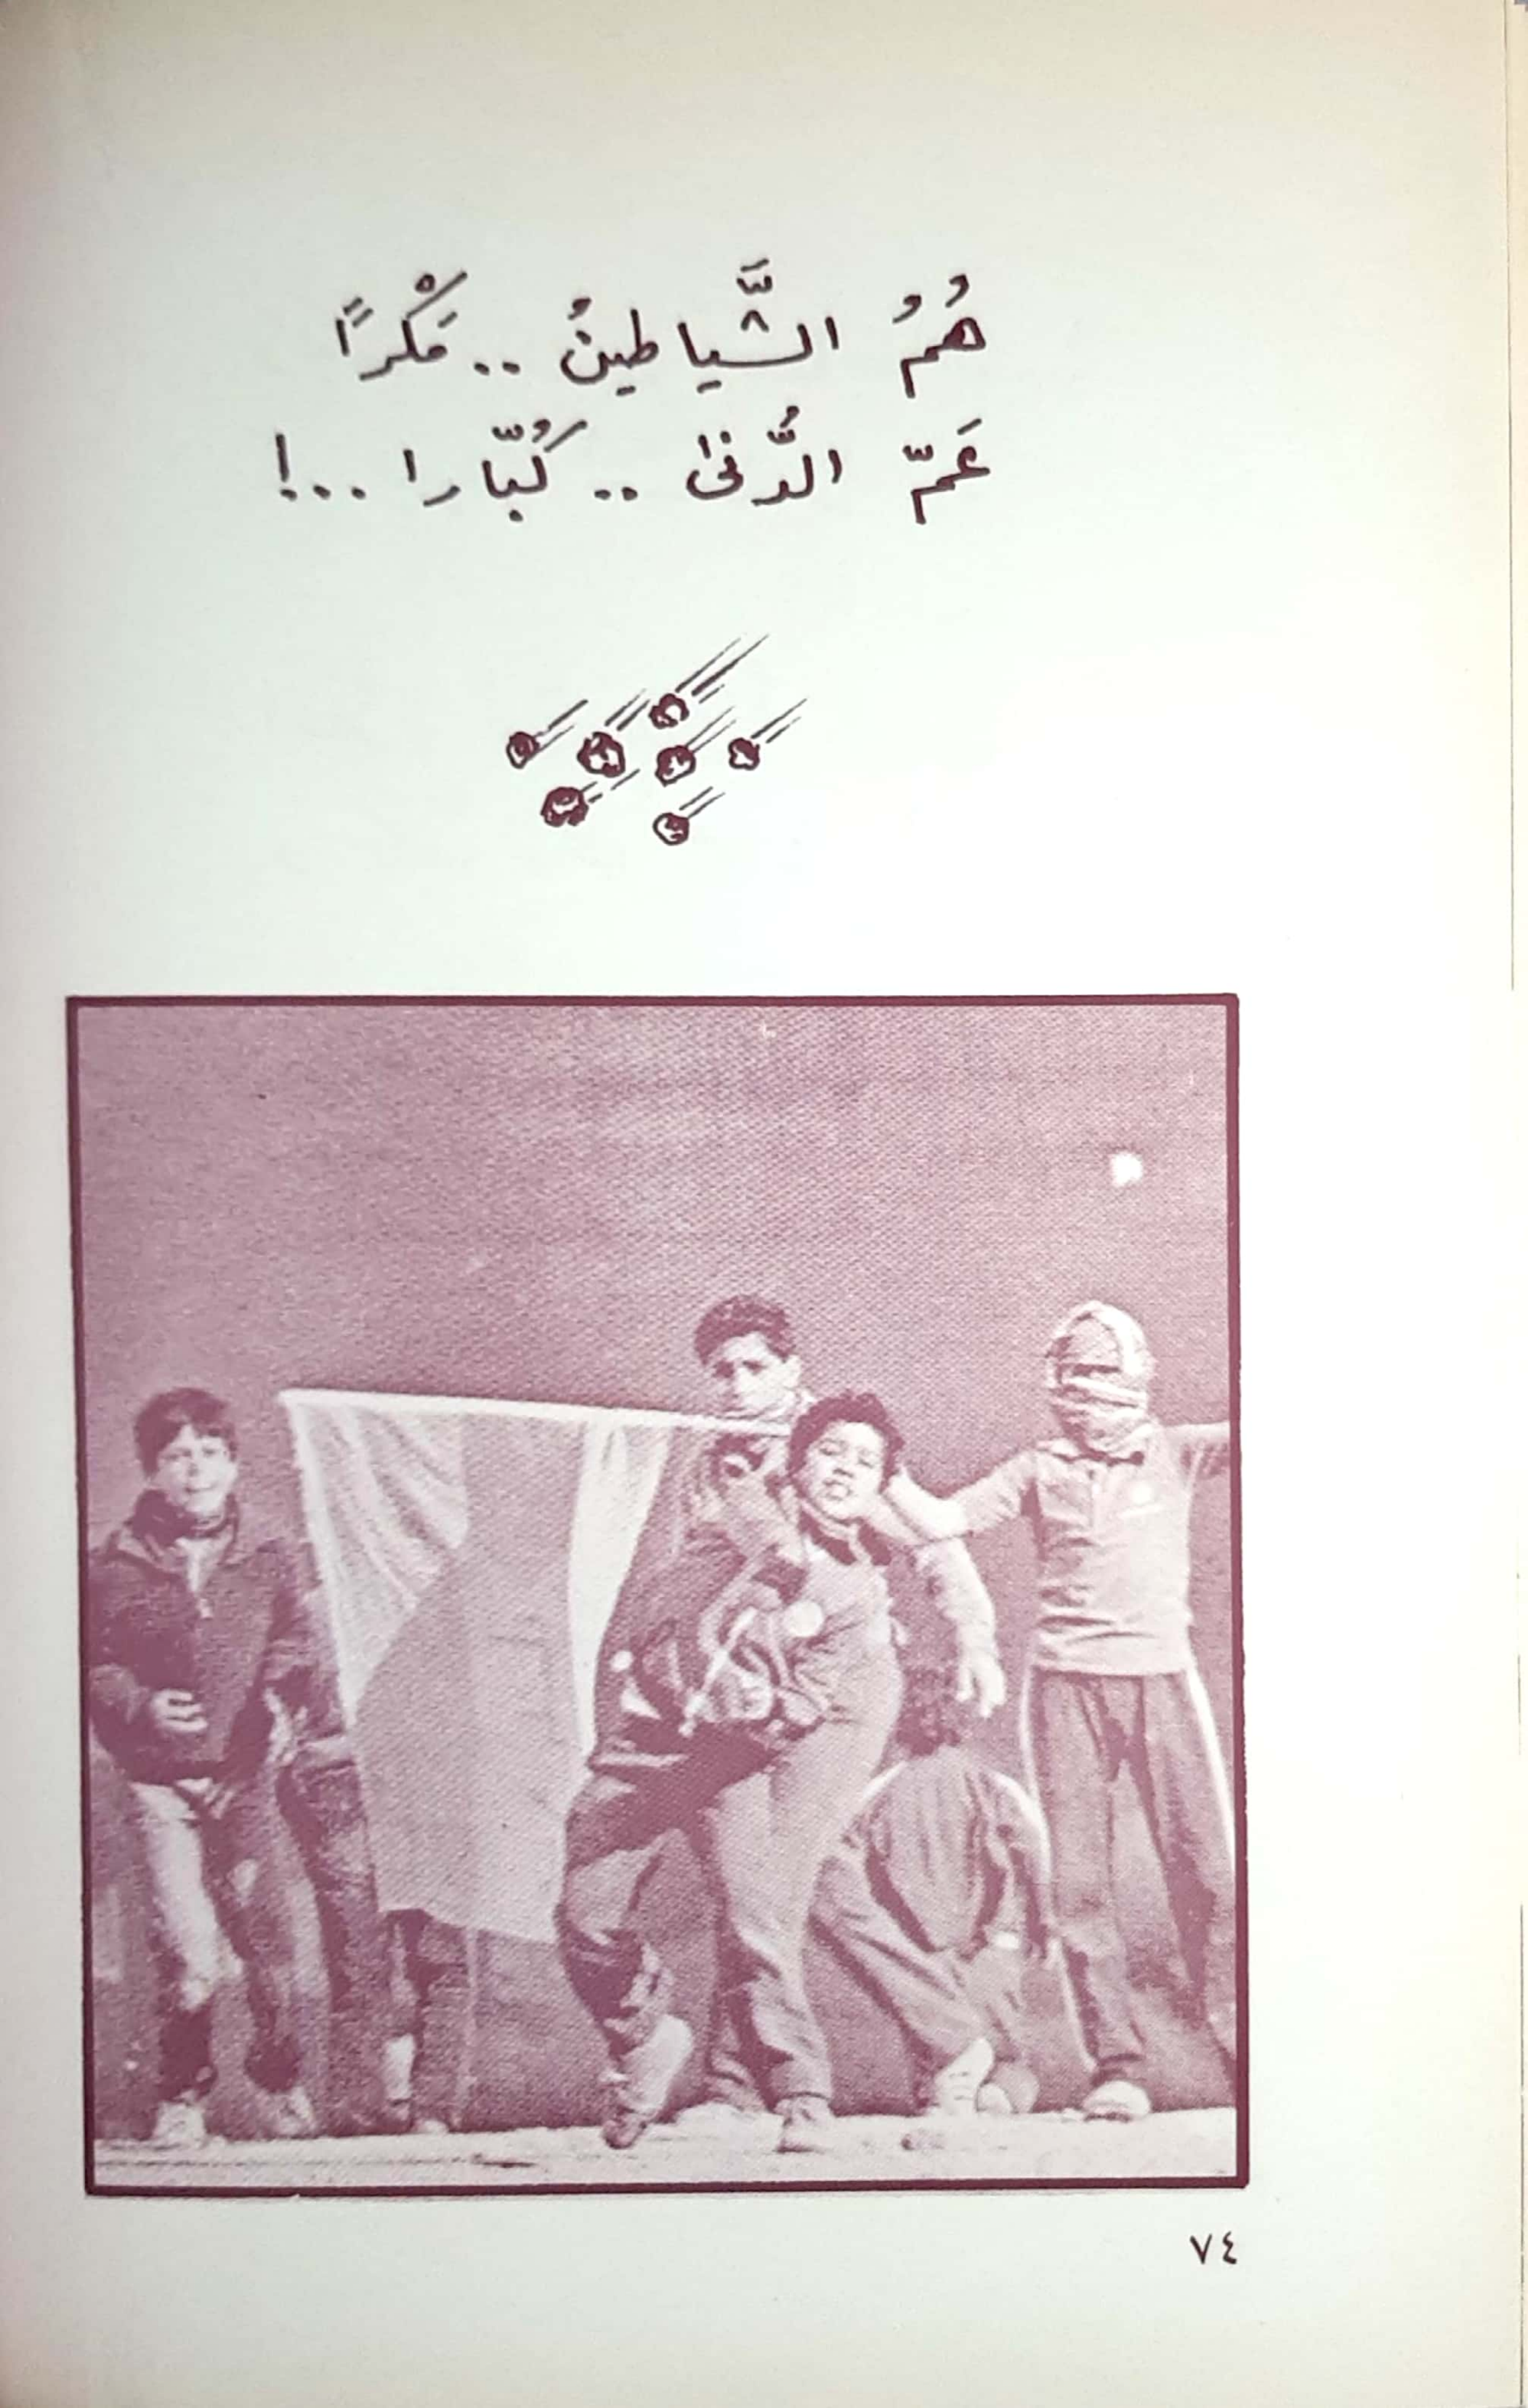 هُمُ الشَّياطينُ .. مَكْرًا
عَمّ الدُّنى .. كُبّارا ...!
٧٤